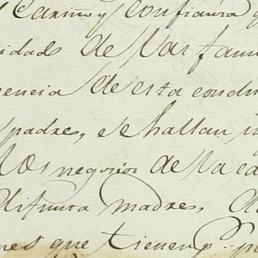 Cariño y confianza q
idads de las fami
gencia de esta condu
padre, se hallan in
los negocios de la ca
difunta madre,
nes que tienen p